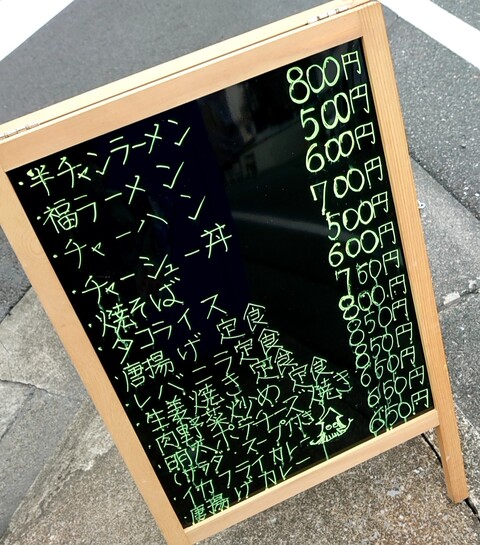 ・半チャンラーメン 800円
・福ラーメン 500円
・チャーハン 600円
・チャーシュー丼 700円
・焼そば 500円
・タコライス 600円
・唐揚げ定食 750円
・レバニラ定食 800円
・生姜焼き定食 850円
・肉野菜炒め定食 850円
・明太
・サラダ
・イカフライカレー 650円
・唐揚げカレー 650円